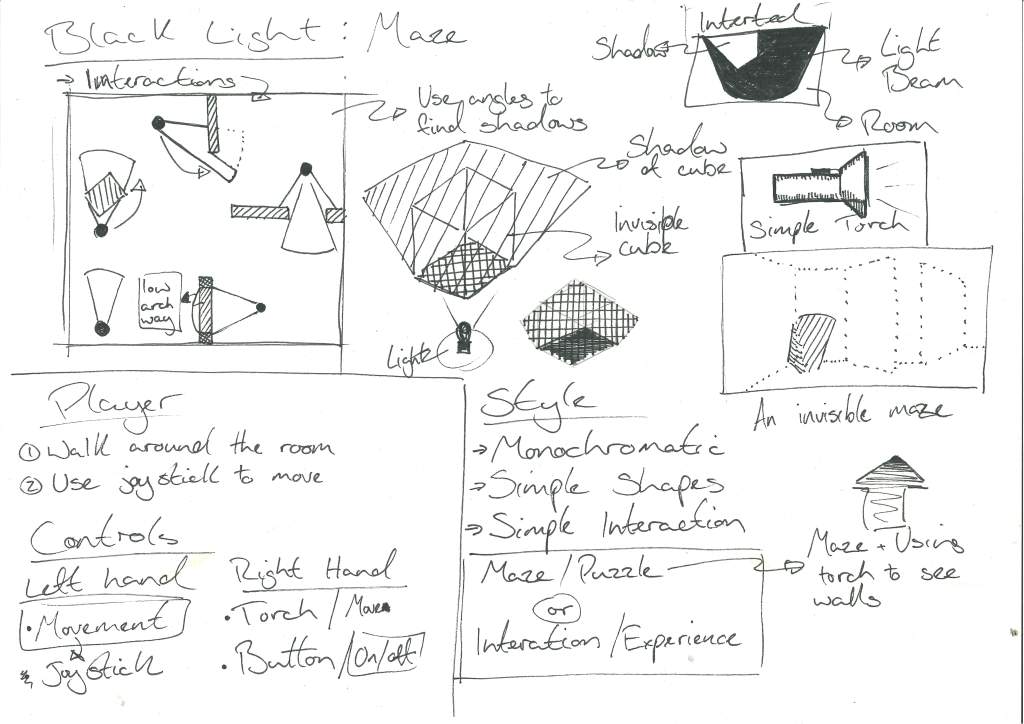 Black Light : Maze
→ Interactions
Use angles to
find shadows
low
arch
way
Shadow
of cube
Invisible
cube
Light
Interted
Shadow
Light
Beam
Room
Simple Torch
An invisible maze
Player
① Walk around the room
② Use joystick to move
Controls
Left hand
• Movement
Joystick
Right Hand
• Torch / Move
• Button / On/off
Style
→ Monochromatic
→ Simple Shapes
→ Simple Interaction
Maze / Puzzle
or
Interation / Experience
Maze + Using
torch to see
walls